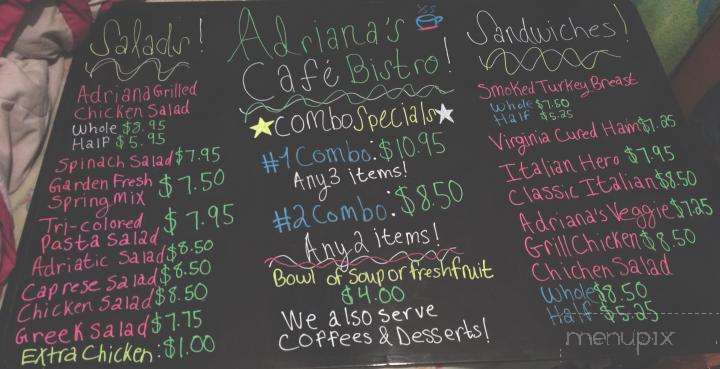 Salads!
Adriana Grilled
Chicken Salad
Whole $8.95
Half $5.95
Spinach Salad $7.95
Garden Fresh
Spring Mix $7.50
Tri-colored
Pasta Salad $7.95
Adriatic Salad $8.50
Caprese Salad $8.50
Chicken Salad $8.50
Greek Salad $7.75
Extra Chicken: $1.00
Adriana's
Café Bistro!
Combo Specials
#1 Combo: $10.95
Any 3 items!
#2 Combo: $8.50
Any 2 items!
Bowl of Soup or fresh fruit
$4.00
We also serve
Coffees & Desserts!
Sandwiches!
Smoked Turkey Breast
Whole $7.50
Half $5.25
Virginia Cured Ham $7.25
Italian Hero $7.95
Classic Italian $8.50
Adriana's Veggie $7.25
Grill Chicken $8.50
Chichen Salad
Whole $8.50
Half $5.25
menupix